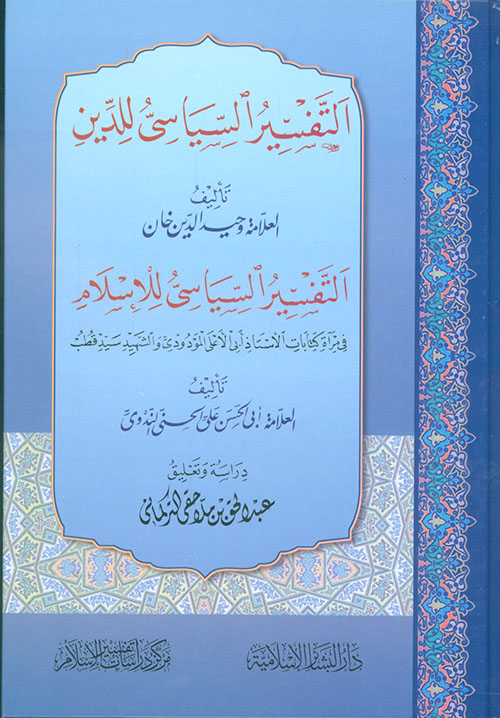 التَّفْسِيرُ السِّيَاسِيُّ لِلدِّينِ
تَأليفُ
العلّامة وحيد الدين خان
التَّفْسِيرُ السِّيَاسِيُّ لِلْإِسْلَامِ
في مرآة كتابات الأستاذ أبي الأعلى المودودي والشهيد سيد قطب
تَأليفُ
العلّامة أبي الحسن علي الحسني الندوي
دراسة وتعليق
عبد الحق بن ملا حقي التركماني
دار البشائر الإسلامية
مركز دراسات تفسير الإسلام